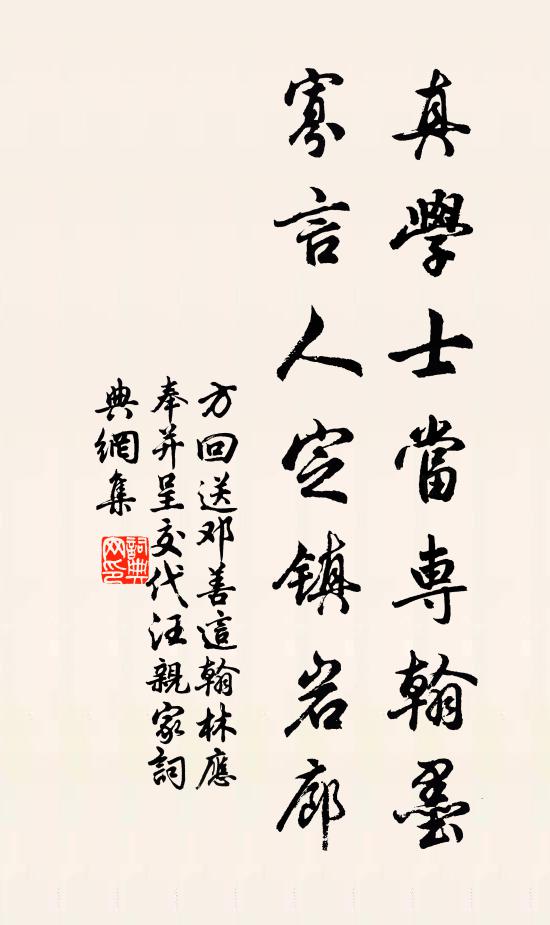 真學士當専翰墨
寡言人定鎮岩廊
方回送邓善這翰林應
奉并呈交代汪親家詞
典網集
詞典網印